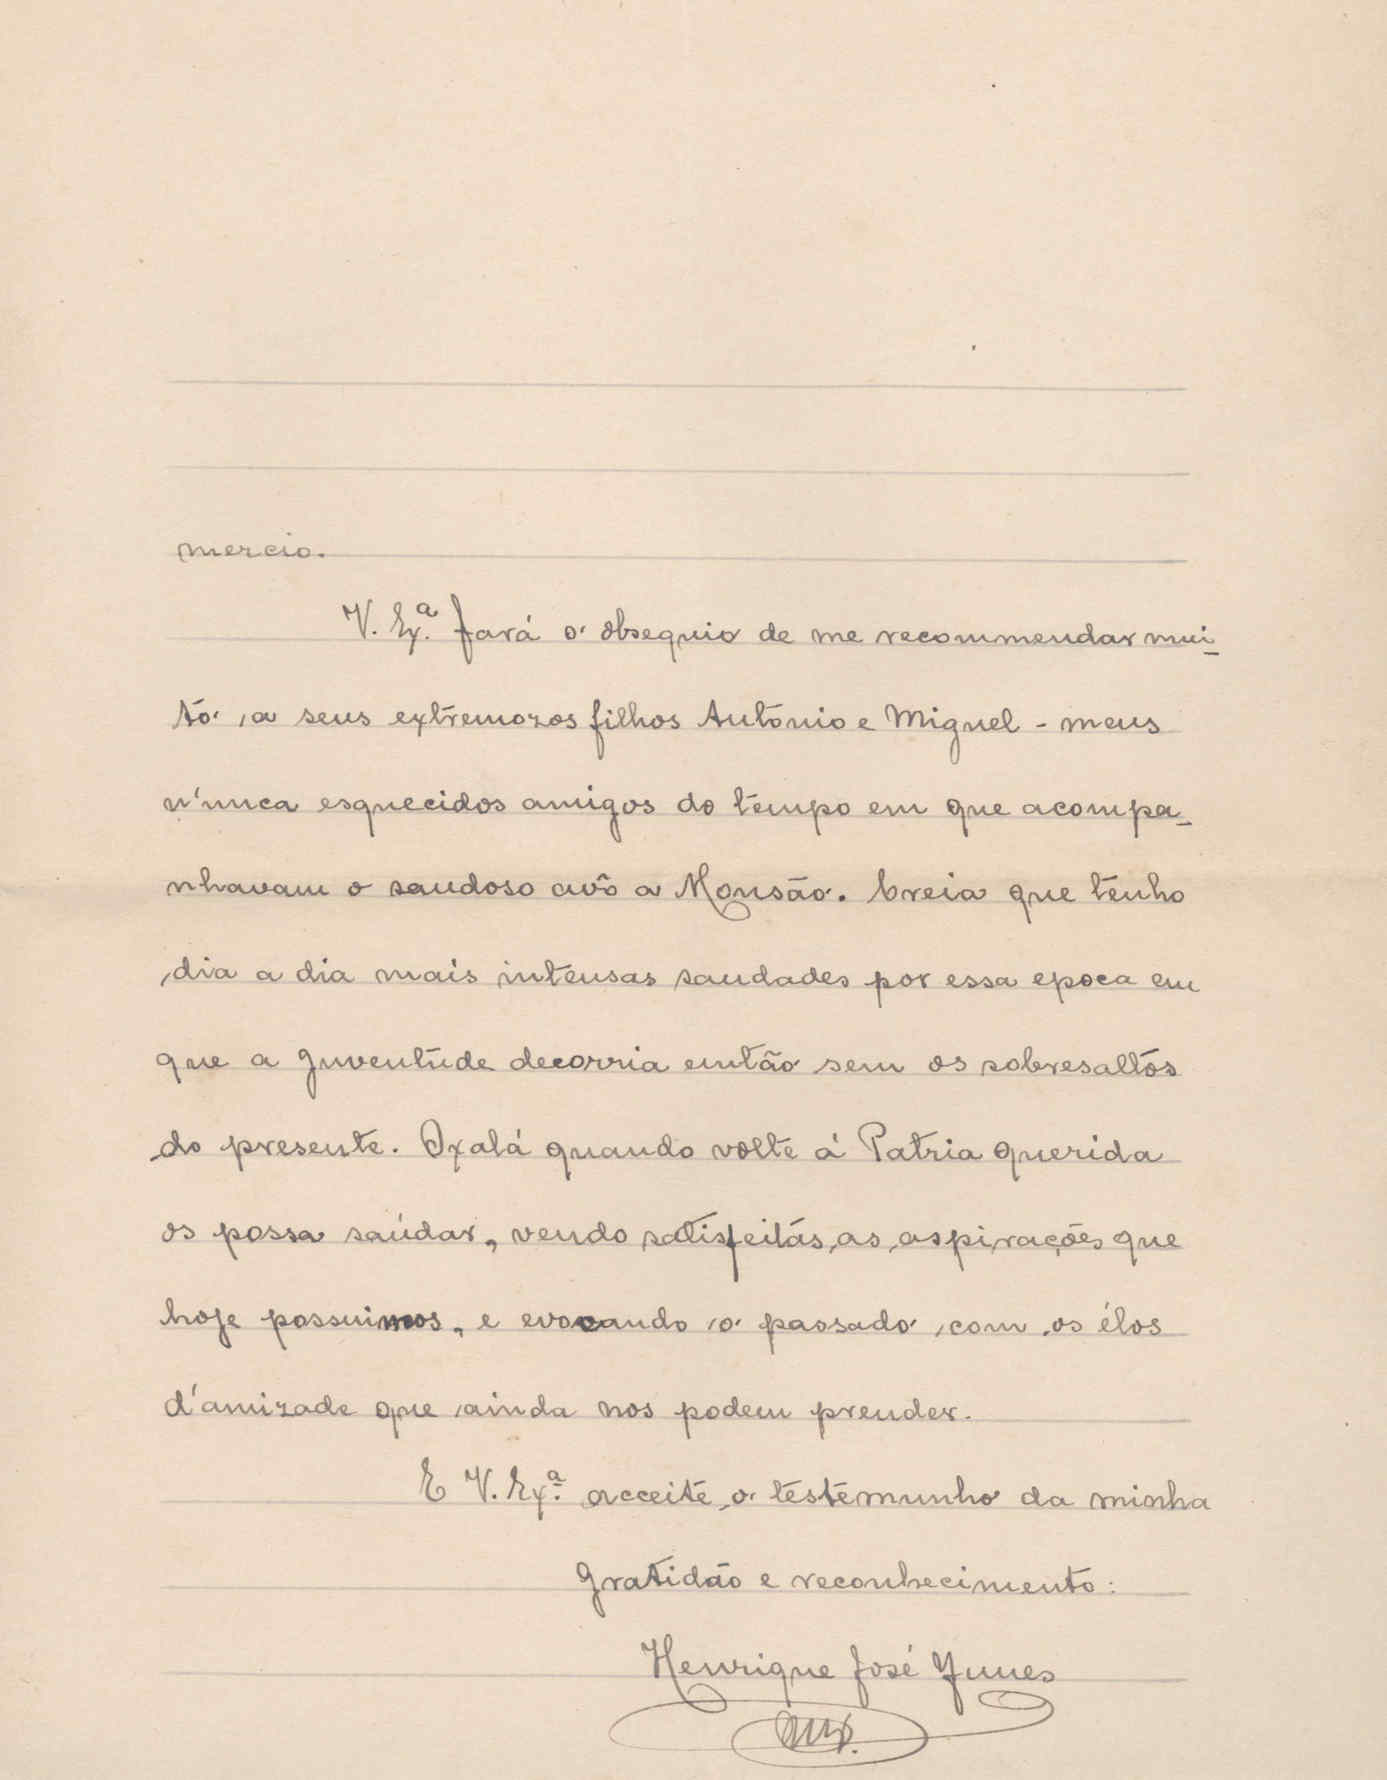 mercio.
V. Ex.ª fará o obsequio de me recommendar mui-
to a seus extremozos filhos António e Miguel - meus
nunca esquecidos amigos do tempo em que acompa-
nhavam o saudoso avô a Monsão. Creia que tenho
dia a dia mais intensas saudades por essa epoca em
que a juventude decorria então sem os sobresaltos
do presente. Oxalá quando volte á Patria querida
os possa saúdar, vendo satisfeitas as aspirações que
hoje possuimos, e evocando o passado com os élos
d'amizade que ainda nos podem prender.
E V. Ex.ª acceite o testemunho da minha
gratidão e reconhecimento:
Henrique José